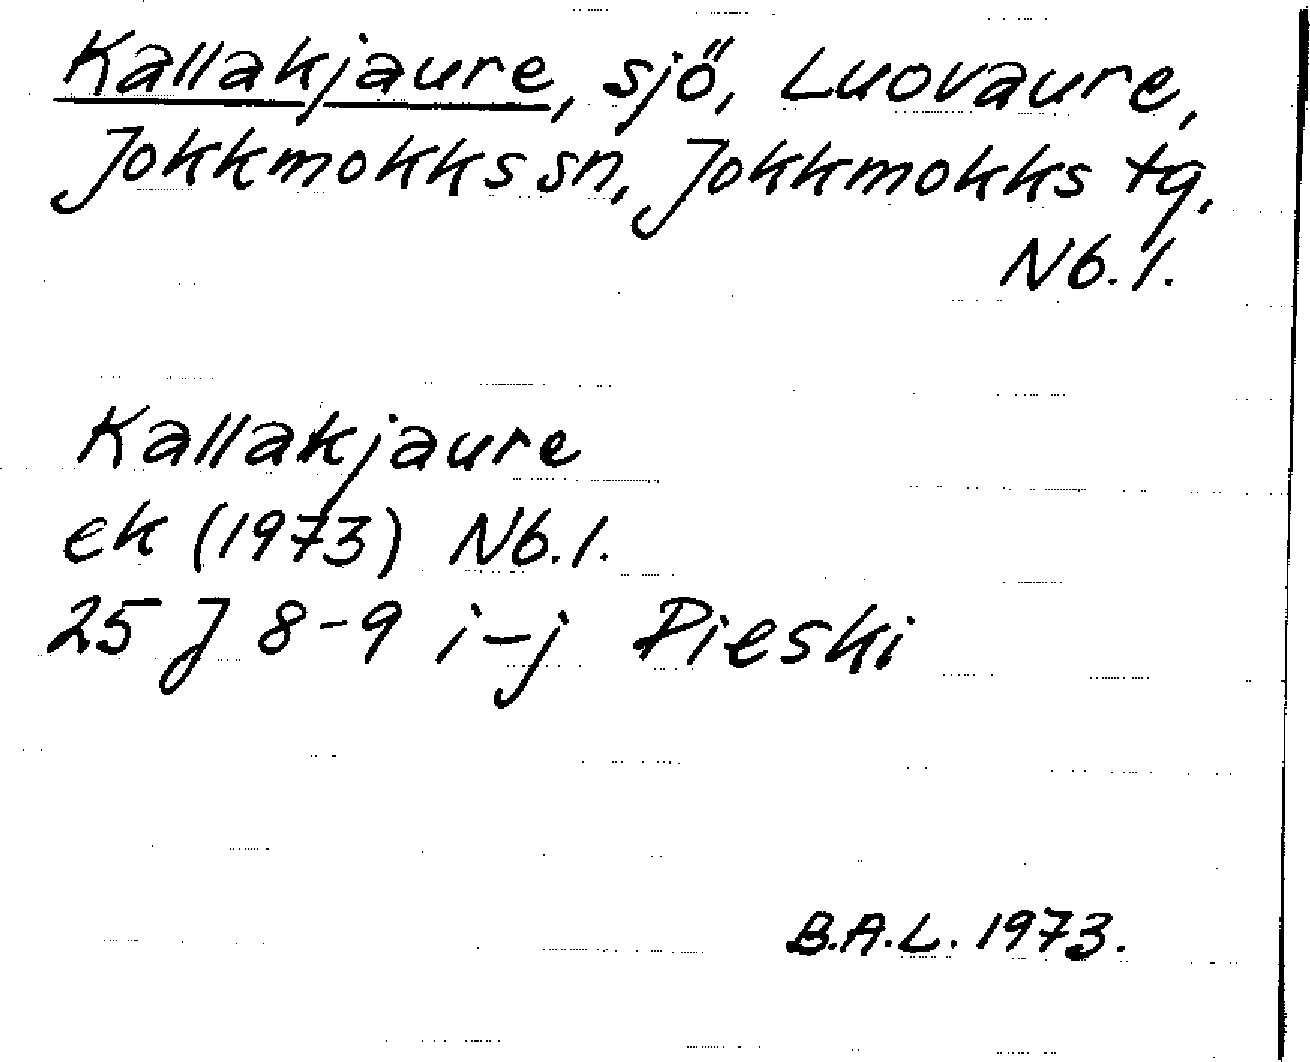 Kallakjaure, sjö, Luovaure,
Jokkmokks sn, Jokkmokks tg,
Nb. l.
Kallakjaure
ek (1973) Nb. l.
25 J 8-9 i-j Pieski
B.A.L. 1973.